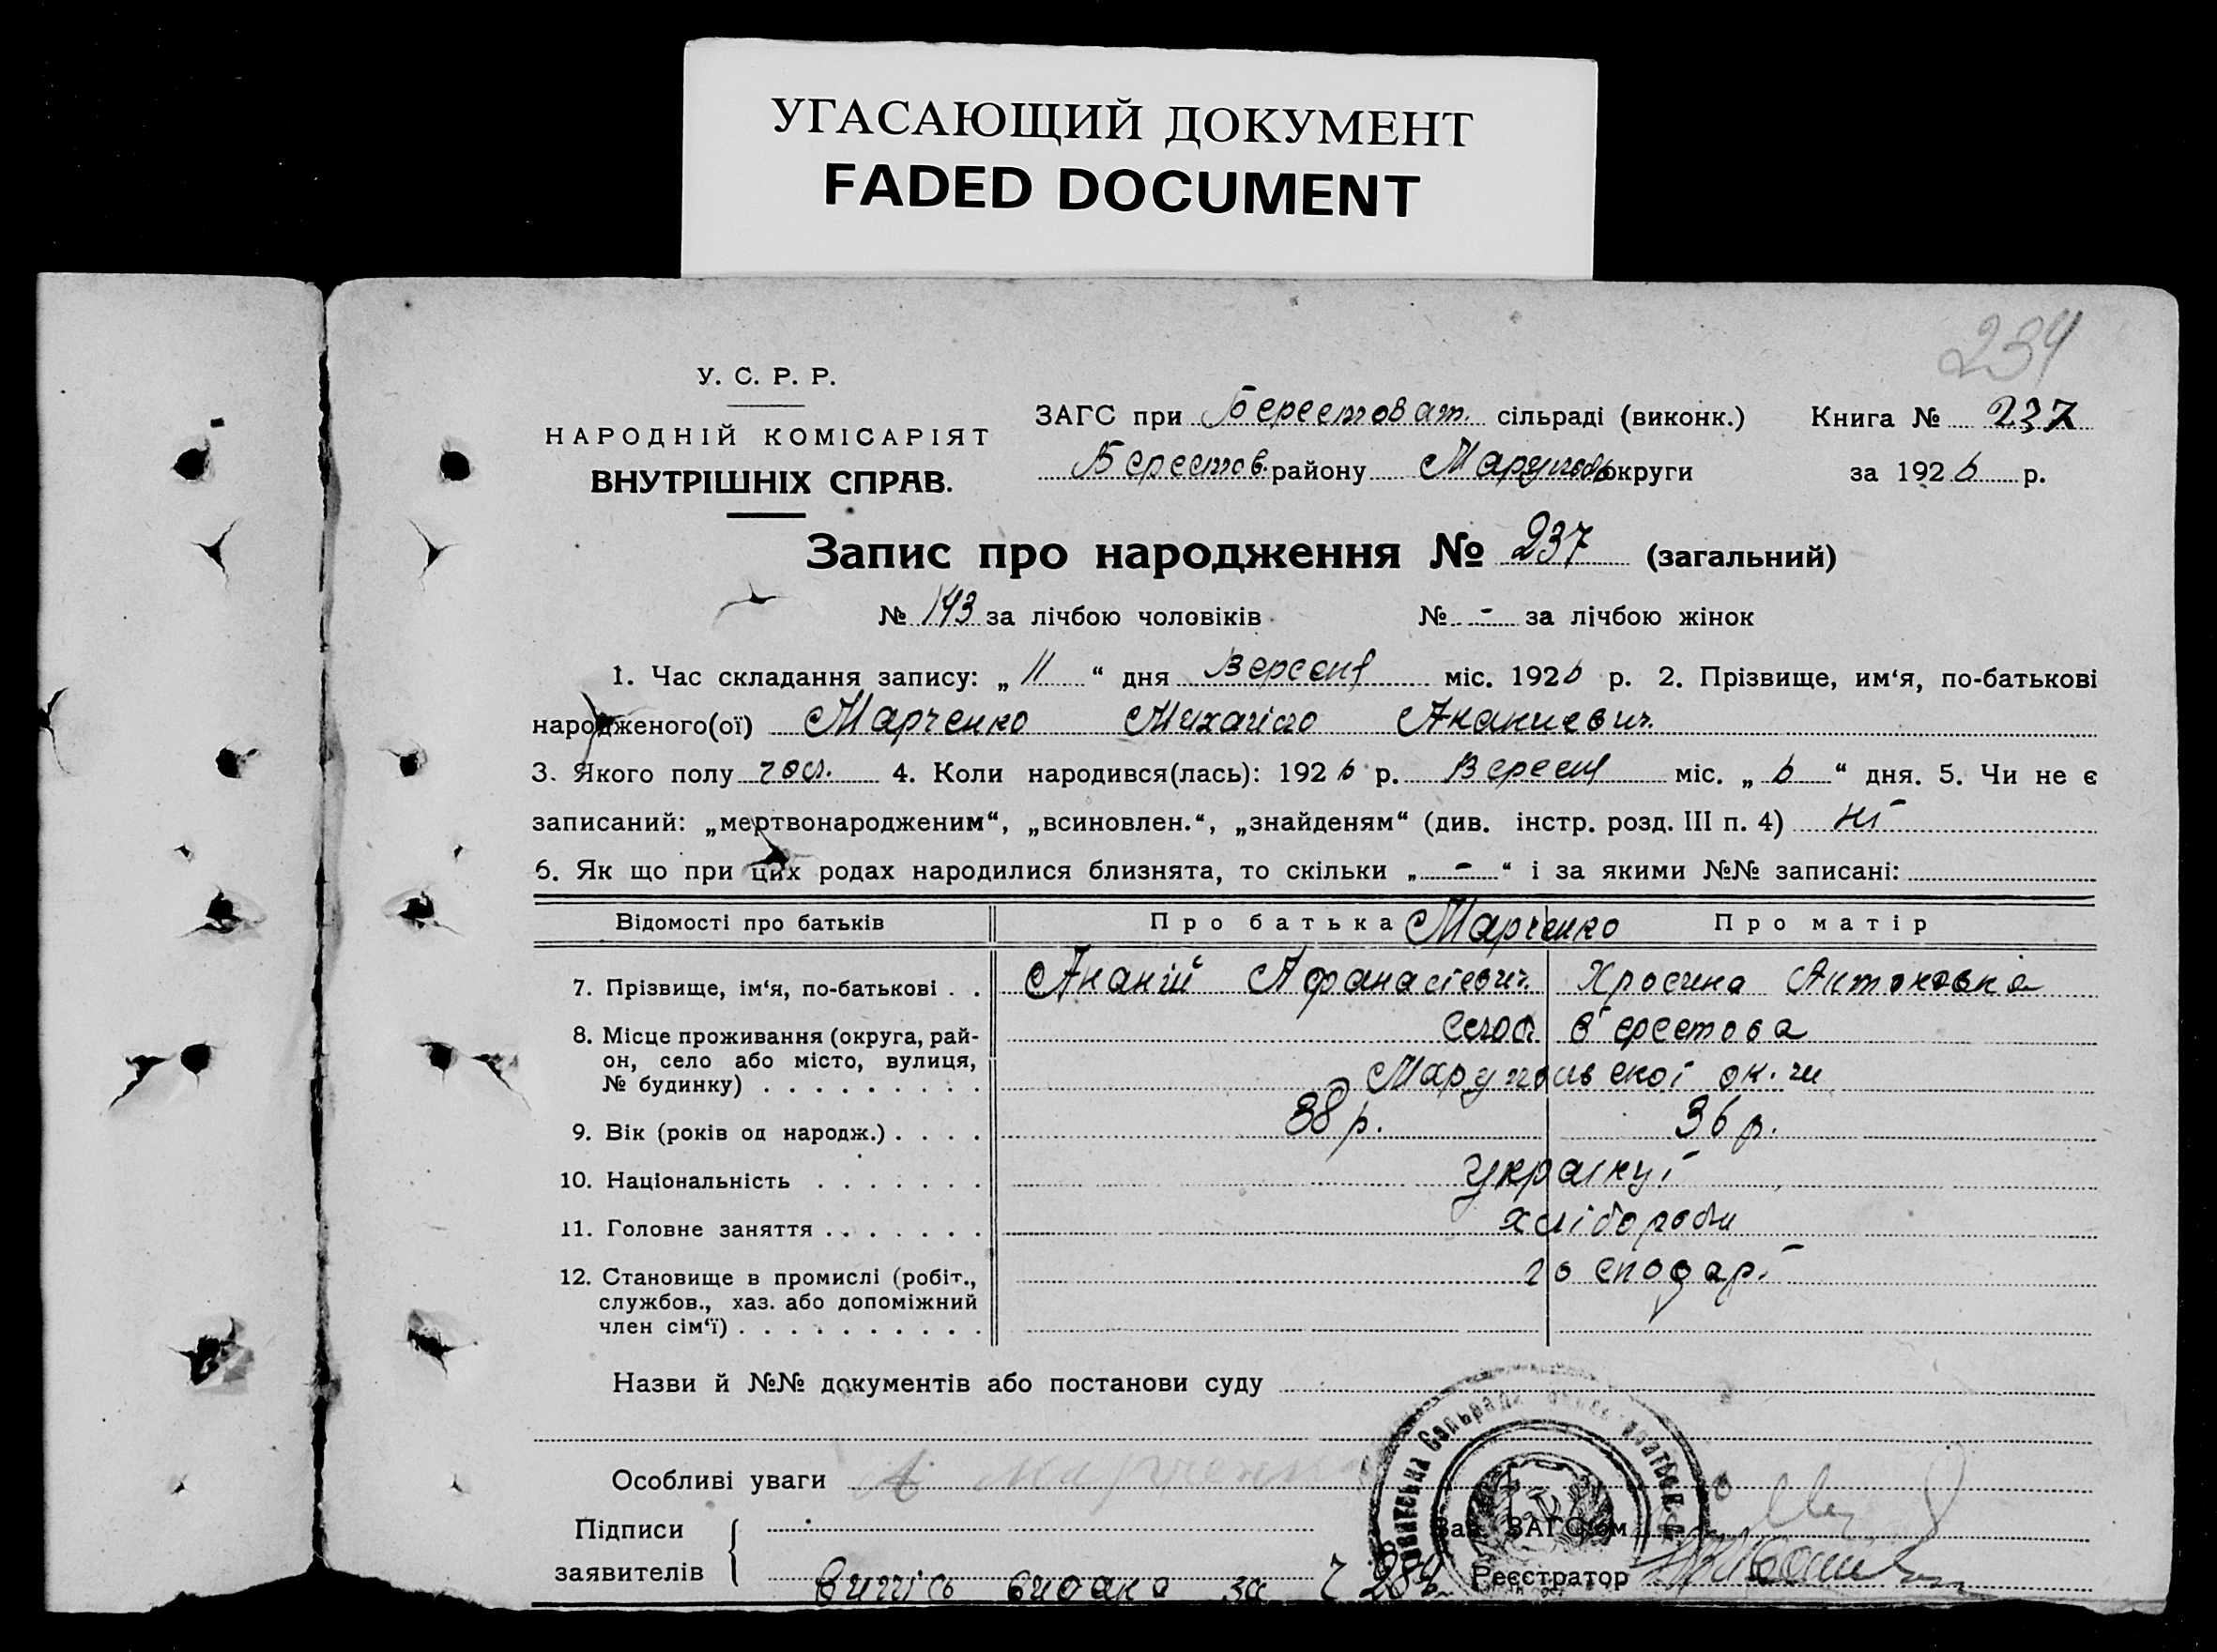 УГАСАЮЩИЙ ДОКУМЕНТ
FADED DOCUMENT
234
У. С. Р. Р.
НАРОДНІЙ КОМІСАРІЯТ
ВНУТРІШНІХ СПРАВ.
ЗАГС при Берестоват. сільраді (виконк.) Книга № 237
Берестов. району Маруполь округи за 1926 р.
Запис про народження № 237 (загальний)
№ 143 за лічбою чоловіків № - за лічбою жінок
1. Час складання запису: „ 11 “ дня Вересня міс. 1926 р. 2. Прізвище, им‘я, по-батькові
народженого(ої) Марченко Михайло Ананиевич.
3. Якого полу чол. 4. Коли народився(лась): 1926 р. Вересня міс. „ 6 “ дня. 5. Чи не є
записаний: „мертвонародженим“, „всиновлен.“, „знайденям“ (див. інстр. розд. III п. 4) ні
6. Як що при цих родах народилися близнята, то скільки „ - “ і за якими №№ записані:
Відомості про батьків Про батька Марченко Про матір
7. Прізвище, ім‘я, по-батькові . . Ананій Афанасієвич. Хросина Антоновна
8. Місце проживання (округа, рай-
он, село або місто, вулиця,
№ будинку) . . . . . . . . .
село Берестова
Марупольскоі ок.
9. Вік (років од народж.) . . . . 38 р. 36 р.
10. Національність . . . . . . . українці
11. Головне заняття . . . . . . . хлібороби
12. Становище в промислі (робіт.,
службов., хаз. або допоміжний
член сім‘ї) . . . . . . . . . .
господарі
Назви й №№ документів або постанови суду
Особливі уваги А Марченко
Підписи
заявителів
Зав. ЗАГС‘ом
Реєстратор
Випісь видана за 284